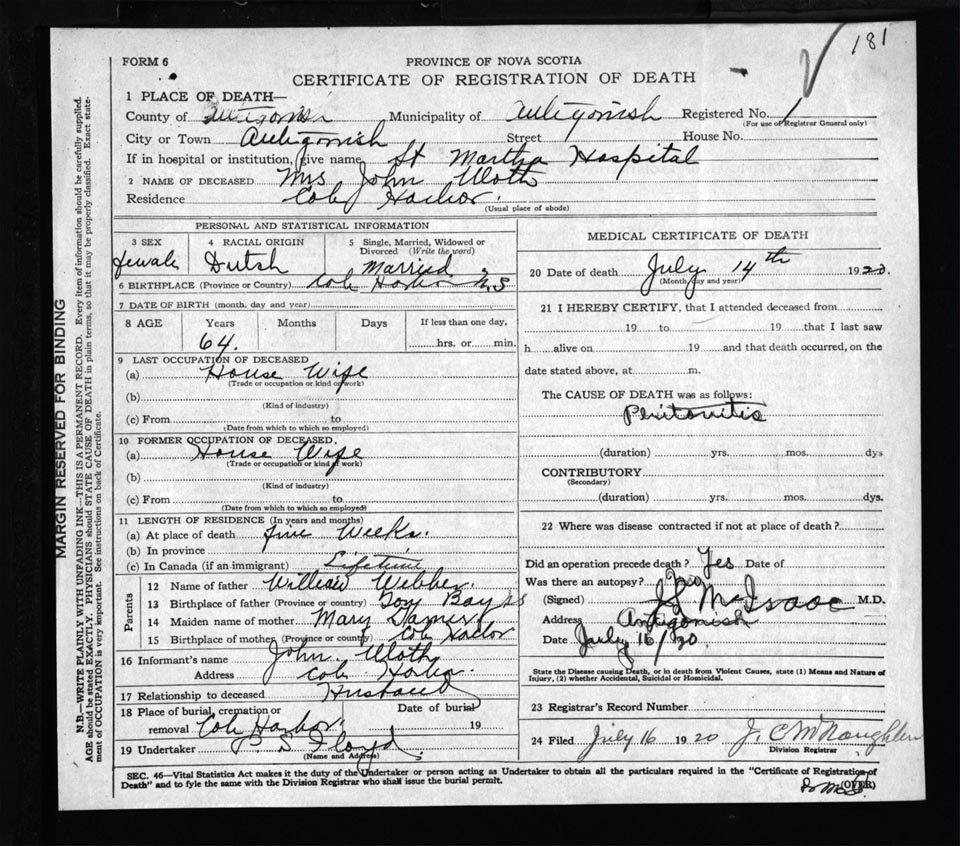 181
FORM 6
PROVINCE OF NOVA SCOTIA
CERTIFICATE OF REGISTRATION OF DEATH
1 PLACE OF DEATH—
County of Antigonish Municipality of Antigonish Registered No. 1
(For use of Registrar General only)
City or Town Antigonish Street House No.
If in hospital or institution, give name St Martha Hospital
2 NAME OF DECEASED Mrs John Uloth
Residence Cole Harbor.
(Usual place of abode)
PERSONAL AND STATISTICAL INFORMATION
3 SEX
female
4 RACIAL ORIGIN
Dutch
5 Single, Married, Widowed or Divorced (Write the word)
Married
6 BIRTHPLACE (Province or Country) Cole Harbor N.S
7 DATE OF BIRTH (month, day and year)
8 AGE Years Months Days If less than one day,
64. hrs. or min.
9 LAST OCCUPATION OF DECEASED
(a) House Wife
(Trade or occupation or kind of work)
(b)
(Kind of industry)
(c) From to
(Date from which to which so employed)
10 FORMER OCCUPATION OF DECEASED.
(a) House Wife
(Trade or occupation or kind of work)
(b)
(Kind of industry)
(c) From to
(Date from which to which so employed)
11 LENGTH OF RESIDENCE (In years and months)
(a) At place of death five Weeks.
(b) In province
(c) In Canada (if an immigrant) Lifetime
Parents
12 Name of father William Webber.
13 Birthplace of father (Province or country) Tor Bay NS
14 Maiden name of mother Mary
15 Birthplace of mother (Province or country) Cole Harbor
16 Informant's name John Uloth
Address Cole Harbor
17 Relationship to deceased Husband
18 Place of burial, cremation or Date of burial
removal Cole Harbor. 19
19 Undertaker P S Floyd.
(Name and Address)
MEDICAL CERTIFICATE OF DEATH
20 Date of death July 14th 1920.
(Month, day and year)
21 I HEREBY CERTIFY, that I attended deceased from
19 to 19 that I last saw
h alive on 19 and that death occurred, on the
date stated above, at m.
The CAUSE OF DEATH was as follows:
Peritonitis
(duration) yrs. mos. dys
CONTRIBUTORY
(Secondary)
(duration) yrs. mos. dys.
22 Where was disease contracted if not at place of death?
Did an operation precede death? Yes Date of
Was there an autopsy? No
(Signed) McIsaac M.D.
Address Antigonish
Date July 16/20.
State the Disease causing Death, or in death from Violent Causes, state (1) Means and Nature of
Injury, (2) whether Accidental, Suicidal or Homicidal.
23 Registrar's Record Number
24 Filed July 16 1920 J. C McNaughton
Division Registrar
SEC. 46—Vital Statistics Act makes it the duty of the Undertaker or person acting as Undertaker to obtain all the particulars required in the "Certificate of Registration of
Death" and to fyle the same with the Division Registrar who shall issue the burial permit.
(OVER)
MARGIN RESERVED FOR BINDING
N.B.—WRITE PLAINLY WITH UNFADING INK—THIS IS A PERMANENT RECORD. Every item of information should be carefully supplied.
AGE should be stated EXACTLY. PHYSICIANS should STATE CAUSE OF DEATH in plain terms, so that it may be properly classified. Exact state-
ment of OCCUPATION is very important. See instructions on back of Certificate.